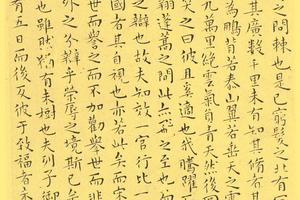 之問棘也是已窮髮之北有
其廣數千里未有知其脩者其
為鵬背若泰山翼若垂天之雲
九萬里絕雲氣負青天然後圖
笑之曰彼且奚適也我騰躍而
翔蓬蒿之間此亦飛之至也
之辯也故夫知效一官行比一
國者其自視也亦若此矣而宋
舉世而譽之而不加勸舉世而非
外之分辯乎榮辱之境斯已矣
也雖然猶有未樹也夫列子御
有五日而後反彼于致福者未